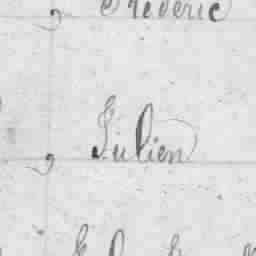 Frédéric
, Julien